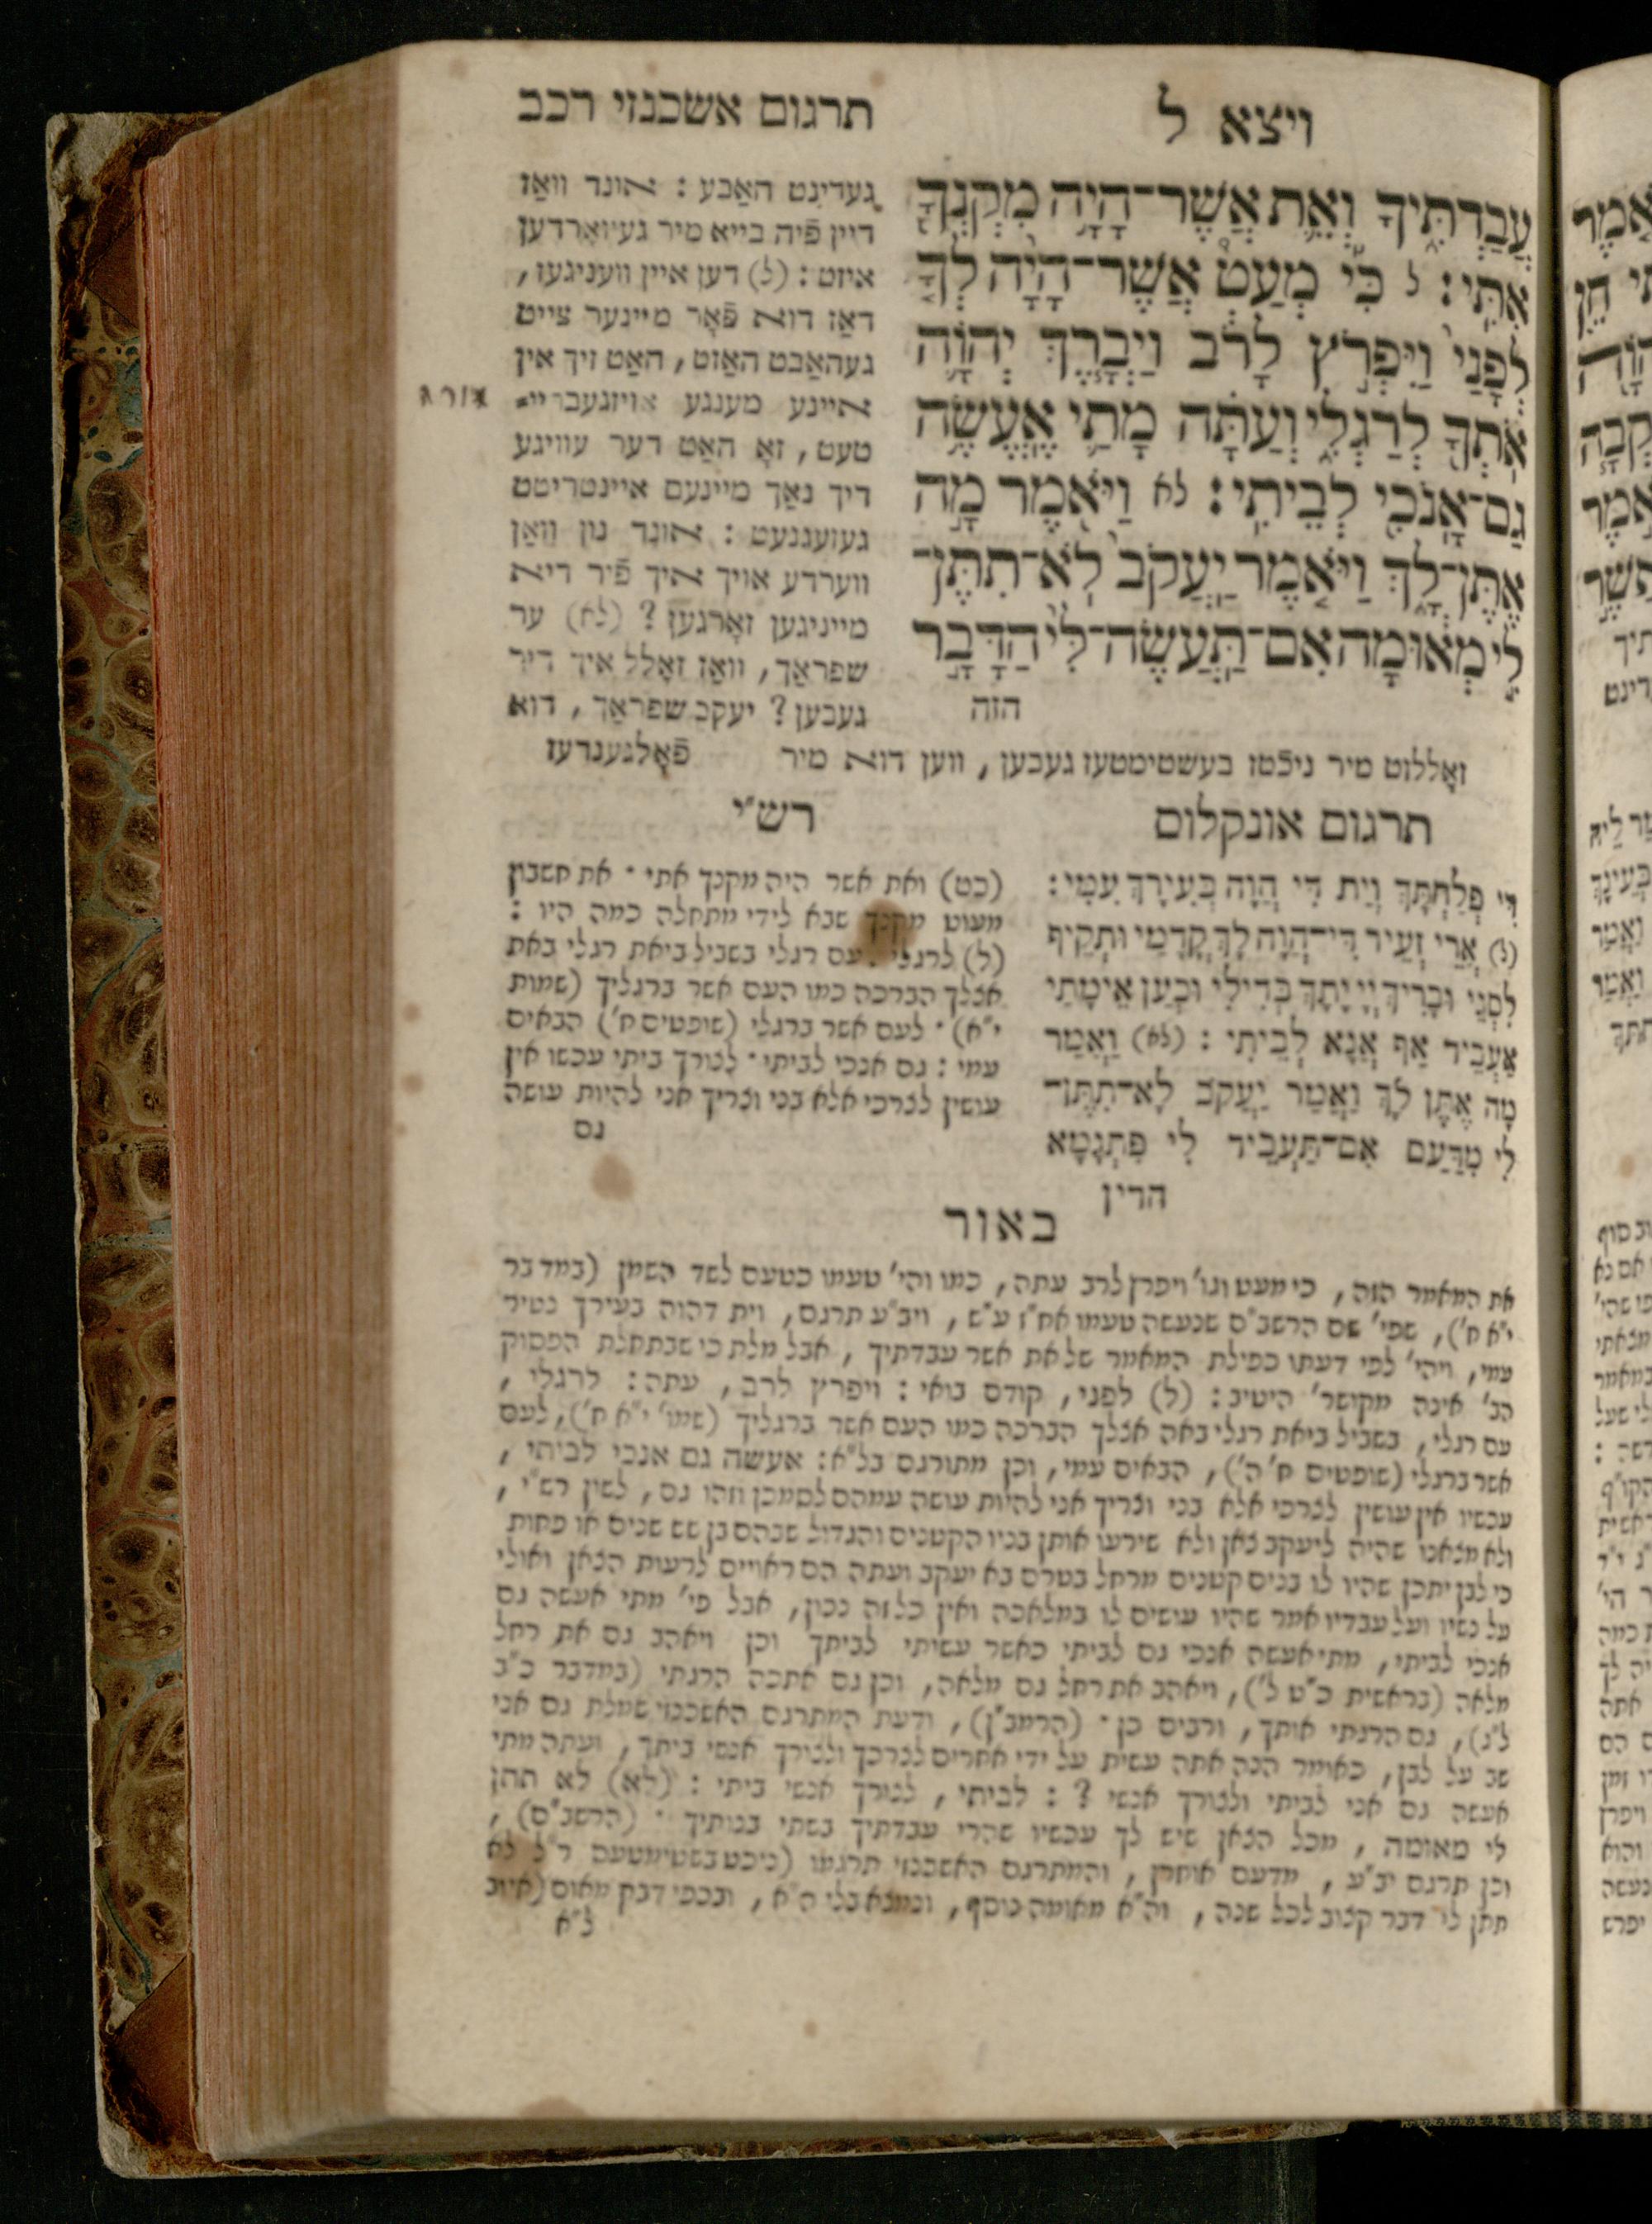 ויצא ל
תרגום אשכנזי רכב
עֲבַדְתִּ֑יךָ וְאֵ֛ת אֲשֶׁר־הָיָ֥ה מִקְנְךָ֖
אִתִּֽי׃ ל כִּ֡י מְעַט֩ אֲשֶׁר־הָיָ֨ה לְךָ֤
לְפָנַי֙ וַיִּפְרֹ֣ץ לָרֹ֔ב וַיְבָ֧רֶךְ יְהוָ֛ה
אֹתְךָ֖ לְרַגְלִ֑י וְעַתָּ֗ה מָתַ֛י אֶֽעֱשֶׂ֥ה
גַם־אָנֹכִ֖י לְבֵיתִֽי׃ לא וַיֹּ֖אמֶר מָ֣ה
אֶתֶּן־לָ֑ךְ וַיֹּ֤אמֶר יַעֲקֹב֙ לֹא־תִתֶּן־
לִ֣י מְא֔וּמָה אִם־תַּֽעֲשֶׂה־לִּי֙ הַדָּבָ֣ר
הזה
געדינט האַבע : אונד וואַז
דיין פֿיה בייא מיר געוואָרדען
איזט : (ל) דען איין וועניגעז ,
דאַז דוא פֿאָר מיינער צייט
געהאַבט האַזט , האַט זיך אין
איינע מענגע אויזגעבריי־
טעט , זאָ האַט דער עוויגע
דיך נאַך מיינעם איינטריטט
געזעגנעט : אונד נון וואַן
ווערדע אויך איך פֿיר דיא
מייניגען זאָרגען ? (לא) ער
שפראַך , וואַז זאָלל איך דיר
געבען ? יעקב שפראַך , דוא
זאָללזט מיר ניכֿטז בעשטימטעז געבען , ווען דוא מיר פֿאָלגענדעז
תרגום אונקלום
דִּי פְלַחְתָּךְ וְיָת דִּי הֲוָה בְּעִירָךְ עִמִּי :
(ל) אֲרֵי זְעֵיר דִּי־הֲוָה לָךְ קֳדָמַי וּתְקֵיף
לִסְגֵּי וּבָרִיךְ יְיָ יָתָךְ בְּדִילִי וּכְעַן אֵימָתַי
אַעְבֵּיד אַף אֲנָא לְבֵיתִי : (לא) וַאֲמַר
מָה אֶתֵּן לָךְ וַאֲמַר יַעֲקֹב לָא־תִתֶּן־
לִי מִדַּעַם אִם־תַּעְבֵּיד לִי פִּתְגָמָא
הדין
רש״י
(כט) ואת אשר היה מקנך אתי · את חשבון
מעוט מקנך שבא לידי מתחלה כמה היו :
(ל) לרגלי עם רגלי בשביל ביאת רגלי באת
אצלך הברכה כמו העם אשר ברגליך (שמות
י״א) · לעם אשר ברגלי (שופטים ח׳) הבאים
עמי : גם אנכי לביתי · לצורך ביתי עכשו אין
עושין לצרכי אלא בני וצריך אני להיות עושה
גם
באור
את המאמר הזה , כי מעט וגו׳ ויפרץ לרב עתה , כמו והי׳ טעמו כטעם לשד השמן (במדבר
י״א ח׳) , שפי׳ שם הרשב״ם שנעשה טעמו אח״ז ע״ש , ויב״ע תרגם , וית דהוה בעירך נטיר
עמי , ויהי׳ לפי דעתו כפילת המאמר של את אשר עבדתיך , אבל מלת כי שבתחלת הפסוק
הב׳ אינה מקושר׳ היטיב : (ל) לפני , קודם בואי : ויפרץ לרב , עתה : לרגלי ,
עם רגלי , בשביל ביאת רגלי באה אצלך הברכה כמו העם אשר ברגליך (שמו׳ י״א ח׳) , לעם
אשר ברגלי (שופטים ח׳ ה׳) , הבאים עמי , וכן מתורגם בל״א : אעשה גם אנכי לביתי ,
עכשיו אין עושין לצרכי אלא בני וצריך אני להיות עושה עמהם לסמכן וזהו גם , לשון רש״י ,
ולא מצאנו שהיה ליעקב צאן ולא שירעו אותן בניו הקטנים והגדול שבהם בן שש שנים או פחות
כי לבן יתכן שהיו לו בנים קטנים מרחל בטרם בא יעקב ועתה הם ראויים לרעות הצאן ואולי
על נשיו ועל עבדיו אמר שהיו עושים לו במלאכה ואין כל זה נכון , אבל פי׳ מתי אעשה גם
אנכי לביתי , מתי אעשה אנכי גם לביתי כאשר עשיתי לביתך וכן ויאהב גם את רחל
מלאה (בראשית כ״ט ל׳) , ויאהב את רחל גם מלאה , וכן גם אתכה הרגתי (במדבר כ״ב
ל״ג) , גם הרגתי אותך , ורבים כן · (הרמב״ן) , ודעת המתרגם האשכנזי שמלת גם אני
שב על לבן , כאומר הנה אתה עשית על ידי אחרים לצרכך ולצורך אנשי ביתך , ועתה מתי
אעשה גם אני לביתי ולצורך אנשי ? : לביתי , לצורך אנשי ביתי : (לא) לא תתן
לי מאומה , מכל הצאן שיש לך עכשיו שהרי עבדתיך בשתי בנותיך · (הרשב״ם) ,
וכן תרגם יב״ע , מדעם אוחרן , והמתרגם האשכנזי תרגמו (ניכט בשטימטעס ר״ל לא
תתן לי דבר קצוב לכל שנה , וה״א מאומה נוסף , ונמצא בלי ה״א , ובכפי דבק מאום (איוב
ל״א